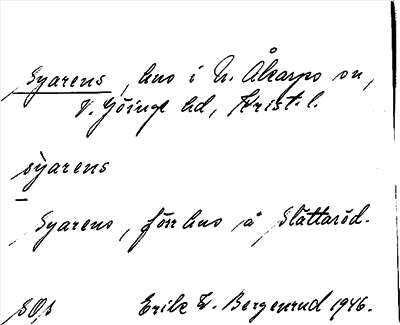 Syarens, hus i N. Åkarps sn,
V. Göinge hd, Krist. l.
sỳarens
Syarens, förr hus å Slättaröd.
SOs Erik W. Bergenrud 1946.